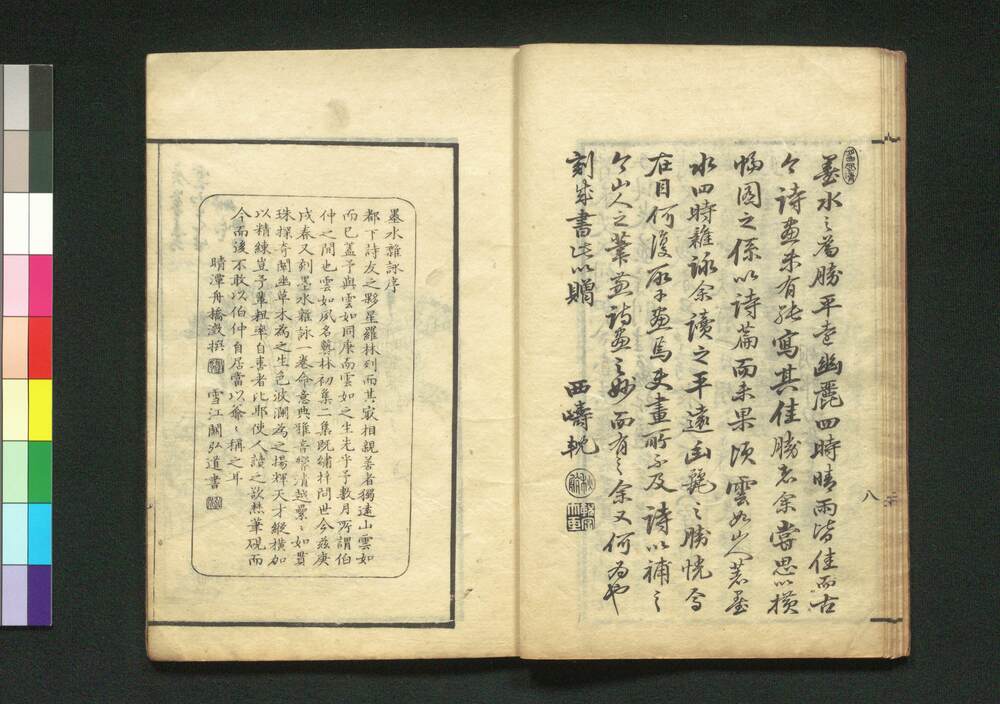 墨水之為勝平遠幽麗四時晴雨皆佳而古
今詩画未有能寫其佳勝者余嘗思以横
幅圖之係以詩篇而未果頃雲如山人著墨
水四時雜詠余讀之平遠幽麗之勝恍為
在目何復取于画焉夫畫所不及詩以補之
今山人之業兼詩画之妙而有之余又何為也
刻成書此以贈
西疇軏
八
墨水雜詠序
都下詩友之夥星羅林列而其最相親善者獨遠山雲如
而已蓋予與雲如同庚而雲如之生先乎予數月所謂伯
仲之間也雲如夙名藝林初集二集既繡梓問世今茲庚
戌春又刻墨水雜詠一卷命意典雅音響清越纍〻如貫
珠探奇闡幽草木為之生色波瀾為之揚輝天才縱横加
以精練豈予輩粗率自喜者比耶使人讀之欲焚筆硯而
今而後不敢以伯仲自居當以爺〻稱之耳
晴潭舟橋澂撰
雪江關弘道書